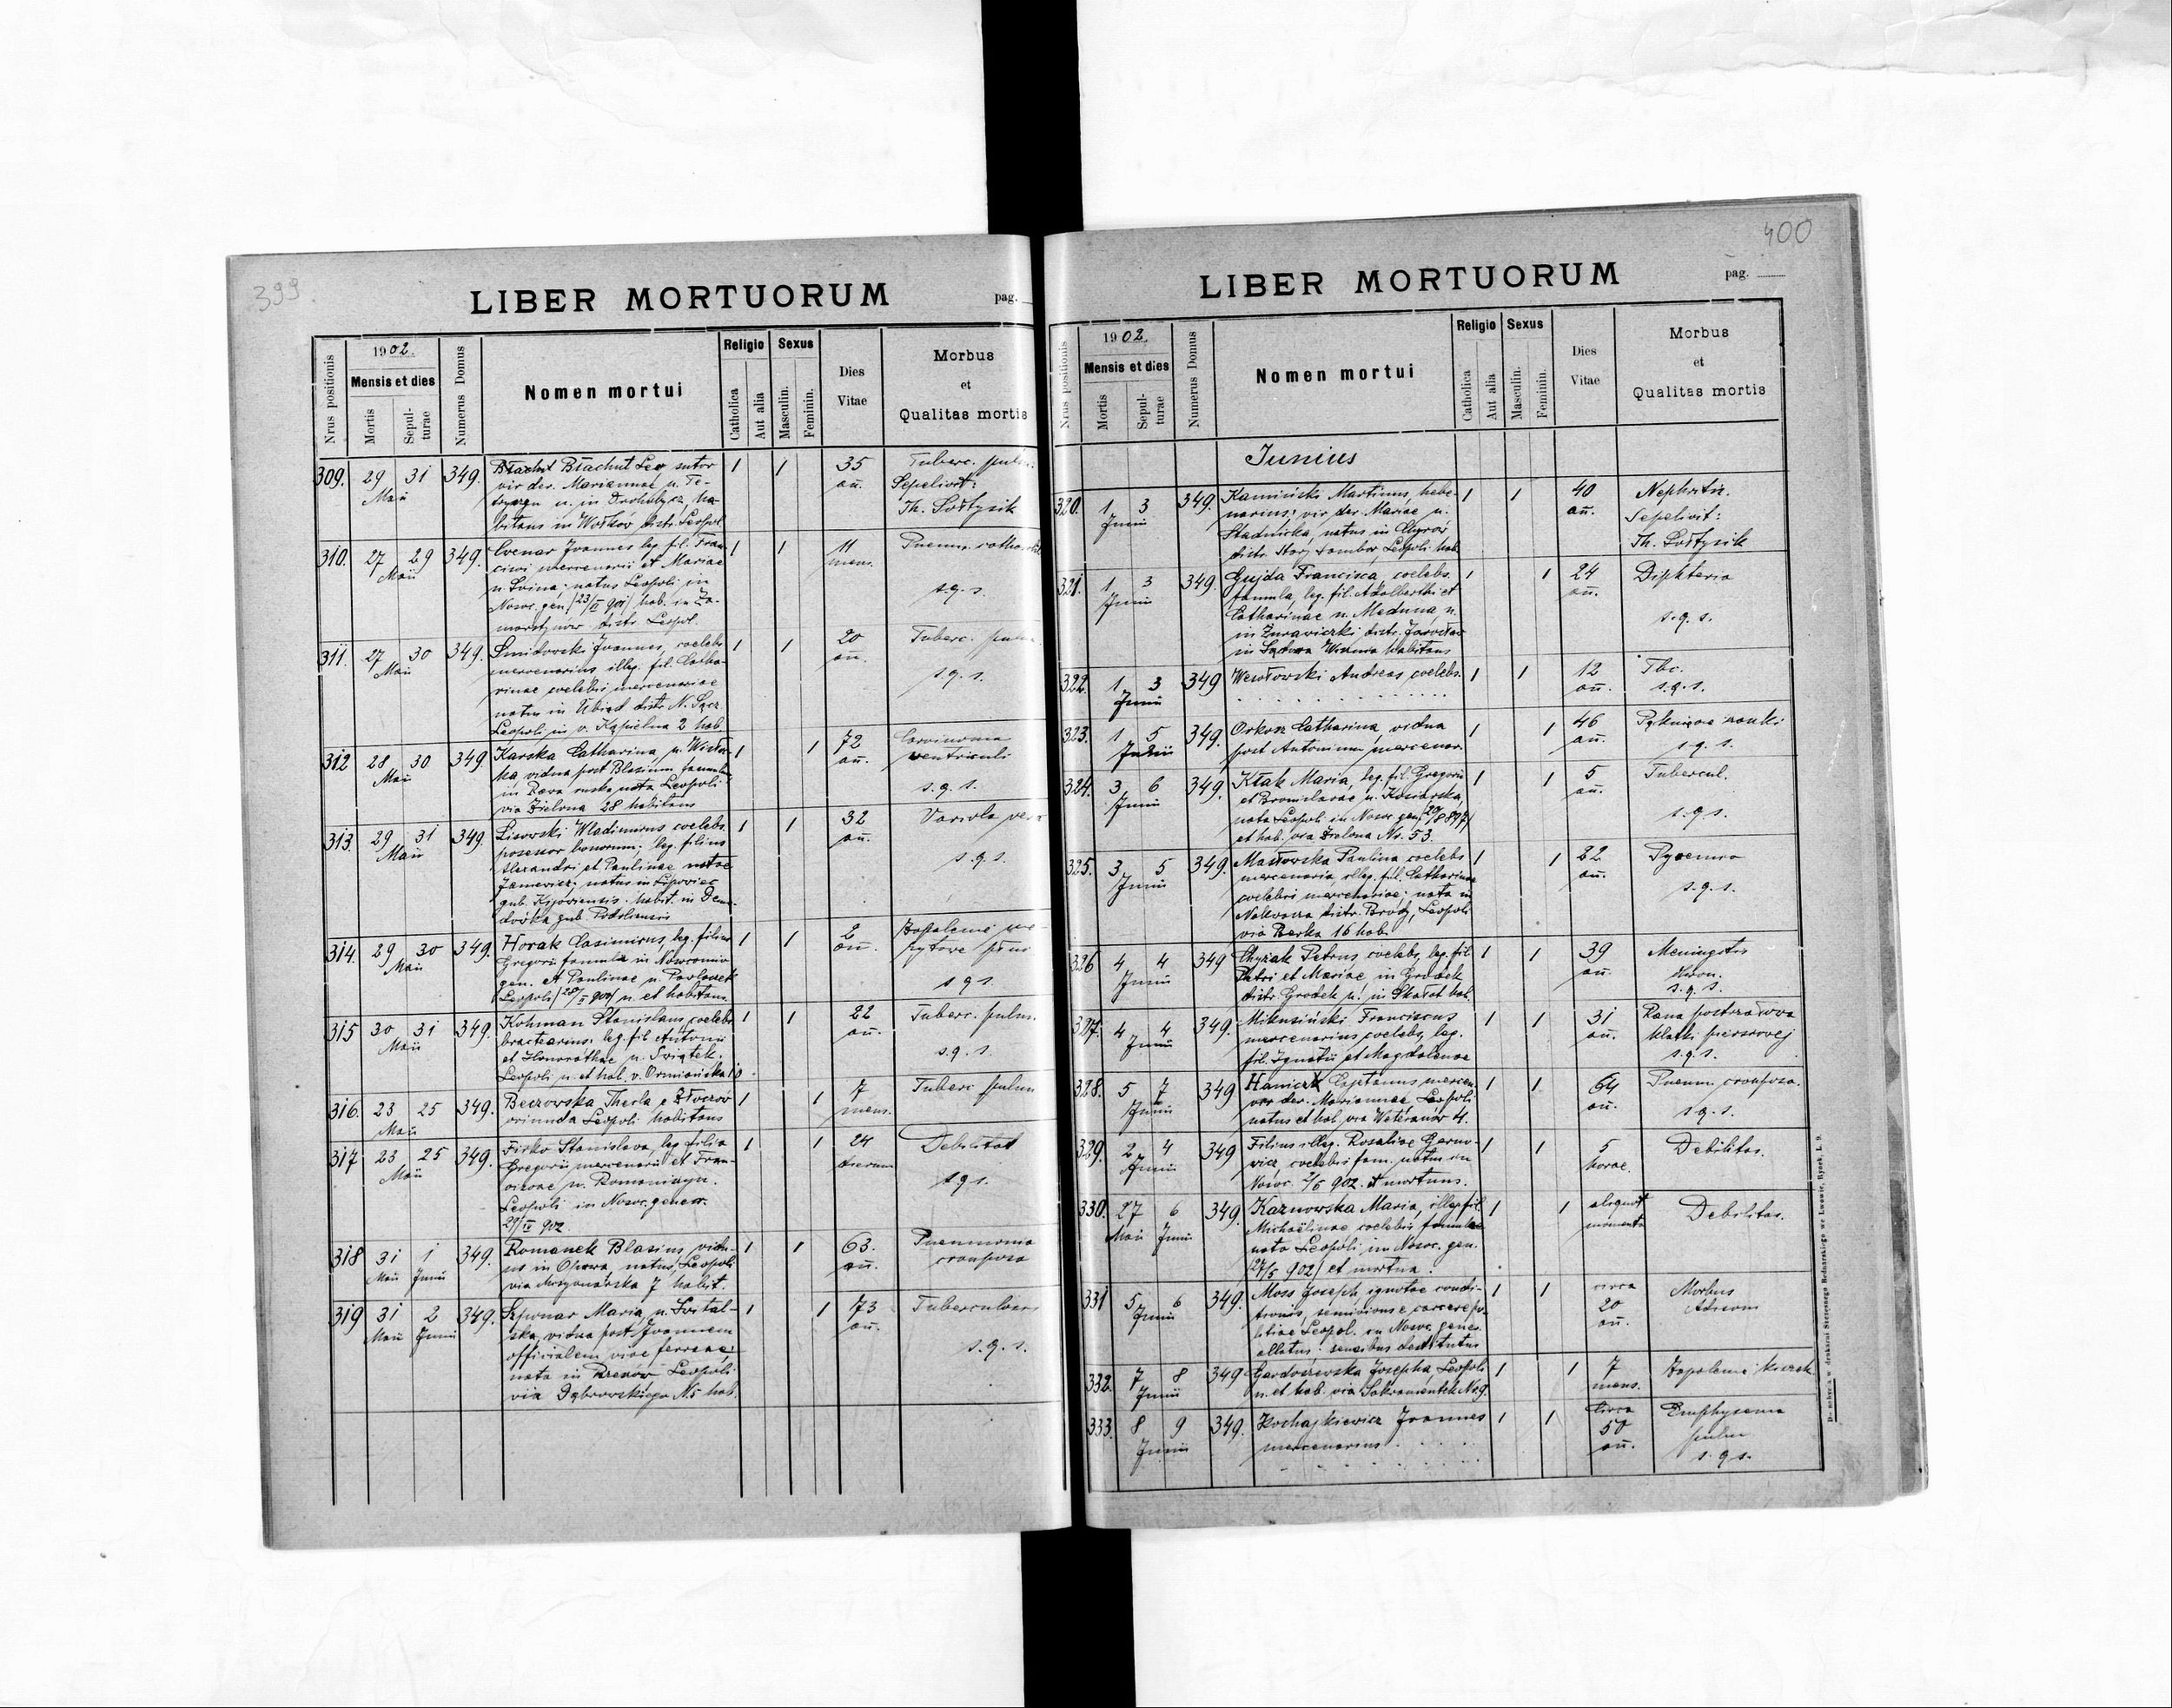 399
LIBER MORTUORUM
pag.
Nrus positionis
1902.
Mensis et dies
Mortis
Sepul-
turae
Numerus Domus
Nomen mortui
Religio
Catholica
Aut alia
Sexus
Masculin.
Feminin.
Dies
Vitae
Morbus
et
Qualitas mortis
309. 29 31 349. Błachut Leo, sutor 1 1 35 Tuberc. pulm.
Maii vir der. Mariannae n. Te- an. Sepelivit:
n. in Drohobycz, ha- Th. Sołtysik
bitans in Wołków distr. Leopol.
310. 27 29 349. Joannes leg. fil. Fran- 1 1 11
Maii cisci mercenarii et Mariae mens.
natus Leopoli in s.q.s.
Nosoc. gen. /23/VI 901/ hab. in Za-
marstynów distr. Leopol.
311. 27 30 349. Joannes, coelebs 1 1 20 Tuberc. pulm.
Maii mercenarius illeg. fil. Catha- an.
rinae coelebis mercenariae s.q.s.
natus in Ubiad distr. N. Sącz
Leopoli in v. Kąpielna 2 hab.
312 28 30 349 Karska Catharina, n. 1 1 72 Carcinoma
Maii vidua post Blasium famulum an. ventriculi
in Rava ruska nata Leopoli s.q.s.
via Zielona 28 habitans
313. 29 31 349. Lisowski Wladimirus coelebs 1 1 32 Variola vera
Maii possessor bonorum; leg. filius an.
Alexandri et Paulinae s.q.s.
natus in Lipowiec
gub. Kijoviensis habit. in Dem-
gub. Podoliensis
314. 29 30 349. Horak Casimirus, leg. filius 1 1 2 Zapalenie
Maii Gregorii famuli in Nosocomio an.
gen. et Paulinae n. Pavlacek s q s.
Leopoli n. et habitans.
315 30 31 349. Kohman Stanislaus, coelebs 1 1 22 Tuberc. pulm.
Maii bractearius leg. fil Antonii an.
et Honorathae n. Świątek. s.q.s.
Leopoli n. et hab. v. Ormiańska 10
316. 23 25 349. Beczowska Thecla e Złoczów 1 1 7 Tuberc pulm
Maii oriunda Leopoli habitans mens.
317 23 25 349. Firko Stanislava, leg. filia 1 1 24 Debilitas
Maii Gregorii mercenarii et Fran- dierum
ciscae n. s q s.
Leopoli in Nosoc. gener.
29/IV 902
318 31 1 349. Romanek Blasius, vidu- 1 1 63. Pneumonia
Maii Junii us in natus, Leopoli an. crouposa
via 7 habit.
319 31 2 349. Szponar Maria, n. 1 1 73 Tuberculosis
Maii Junii vidua post Joannem an.
officialem viae ferreae; s.q.s.
nata in Leopoli
via Dąbrowskiego N5 hab.
400
LIBER MORTUORUM
pag.
Nrus positionis
1902.
Mensis et dies
Mortis
Sepul-
turae
Numerus Domus
Nomen mortui
Religio
Catholica
Aut alia
Sexus
Masculin.
Feminin.
Dies
Vitae
Morbus
et
Qualitas mortis
Junius
320. 1 3 349. Kamiński Martinus, hebe- 1 1 40 Nephritis.
Junii narius; vir der. Mariae n. an. Sepelivit:
Stadnicka, natus in Chyrów Th. Sołtysik
distr. Stary Sambor Leopoli hab.
321. 1 3 349. Gujda Francisca, coelebs 1 1 24 Diphteria
Junii famula, leg. fil. Adalberthi et an.
Catharinae n. Meduna, n. s.q.s.
in Żurawiczki distr. Jarosław
in Sądowa Wisznia habitans
322. 1 3 349 Wesołowski Andreas coelebs. 1 1 12 Tbc.
Junii an. s.q.s.
323. 1 5 349. Orkosz Catharina, vidua 1 1 46 Pęknięcie
Junii post Antonium mercenar. an. s.q.s.
324. 3 6 349. Kłak Maria, leg. fil. Gregorii 1 1 5 Tubercul.
Junii et Bronislavae n. Kosiarska, an.
nata Leopoli in Nosoc. gen. s.q.s.
et hab. via Zielona No. 53.
325. 3 5 349. Masłowska Paulina coelebs 1 1 22 Pyaemia
Junii mercenaria, illeg. fil. Catharinae an.
coelebis mercenariae; nata in s.q.s.
Nakwasza distr. Brody, Leopoli
via Berka 16 hab.
326 4 4 349 Chyżak Petrus coelebs, leg. fil 1 1 39 Meningitis
Junii Petri et Mariae, in Gródek an.
distr. Gródek n. in Skałat hab. s.q.s.
327. 4 4 349. Mikusiński Franciscus 1 1 31 Rana postrzałowa
Junii mercenarius coelebs, leg. an. klatki piersiowej
fil. Ignatii et Magdalenae s.q.s.
328. 5 7 349 Cajetanus mercen. 1 1 64 Pneum. crouposa.
Junii vir der. Mariannae Leopoli an.
natus et hab. via Weteranów 4. s.q.s.
329. 2 4 349 Filius illeg. Rosaliae 1 1 5 Debilitas.
Junii coelebis fam. natus in horae.
Nosoc. 2/6 902. et mortuus.
330. 27 6 349. Kaznowska Maria, illeg. fil. 1 1 aliquot Debilitas.
Maii Junii Michaëlinae coelebis famulae momenta
nata Leopoli in Nosoc. gen.
/27/5 902/ et mortua.
331 5 6 349. Moss Joseph ignotae condi- 1 1 circa Morbus
Junii tionis, e carcere po- 20 Adisoni
litiae Leopol. in Nosoc. gener. an.
allatus: sensibus destitutus
332. 7 8 349 Josepha, Leopoli 1 1 7 Zapalenie kiszek
Junii n. et hab. via Sakramentek No. 9. mens.
333. 8 9 349. Kochajkiewicz Joannes 1 1 Circa Emphysema
Junii mercenarius 50 pulm
an. s.q.s.
Do nabycia w drukarni Szczęsnego Bednarskiego we Lwowie, Rynek, L. 9.